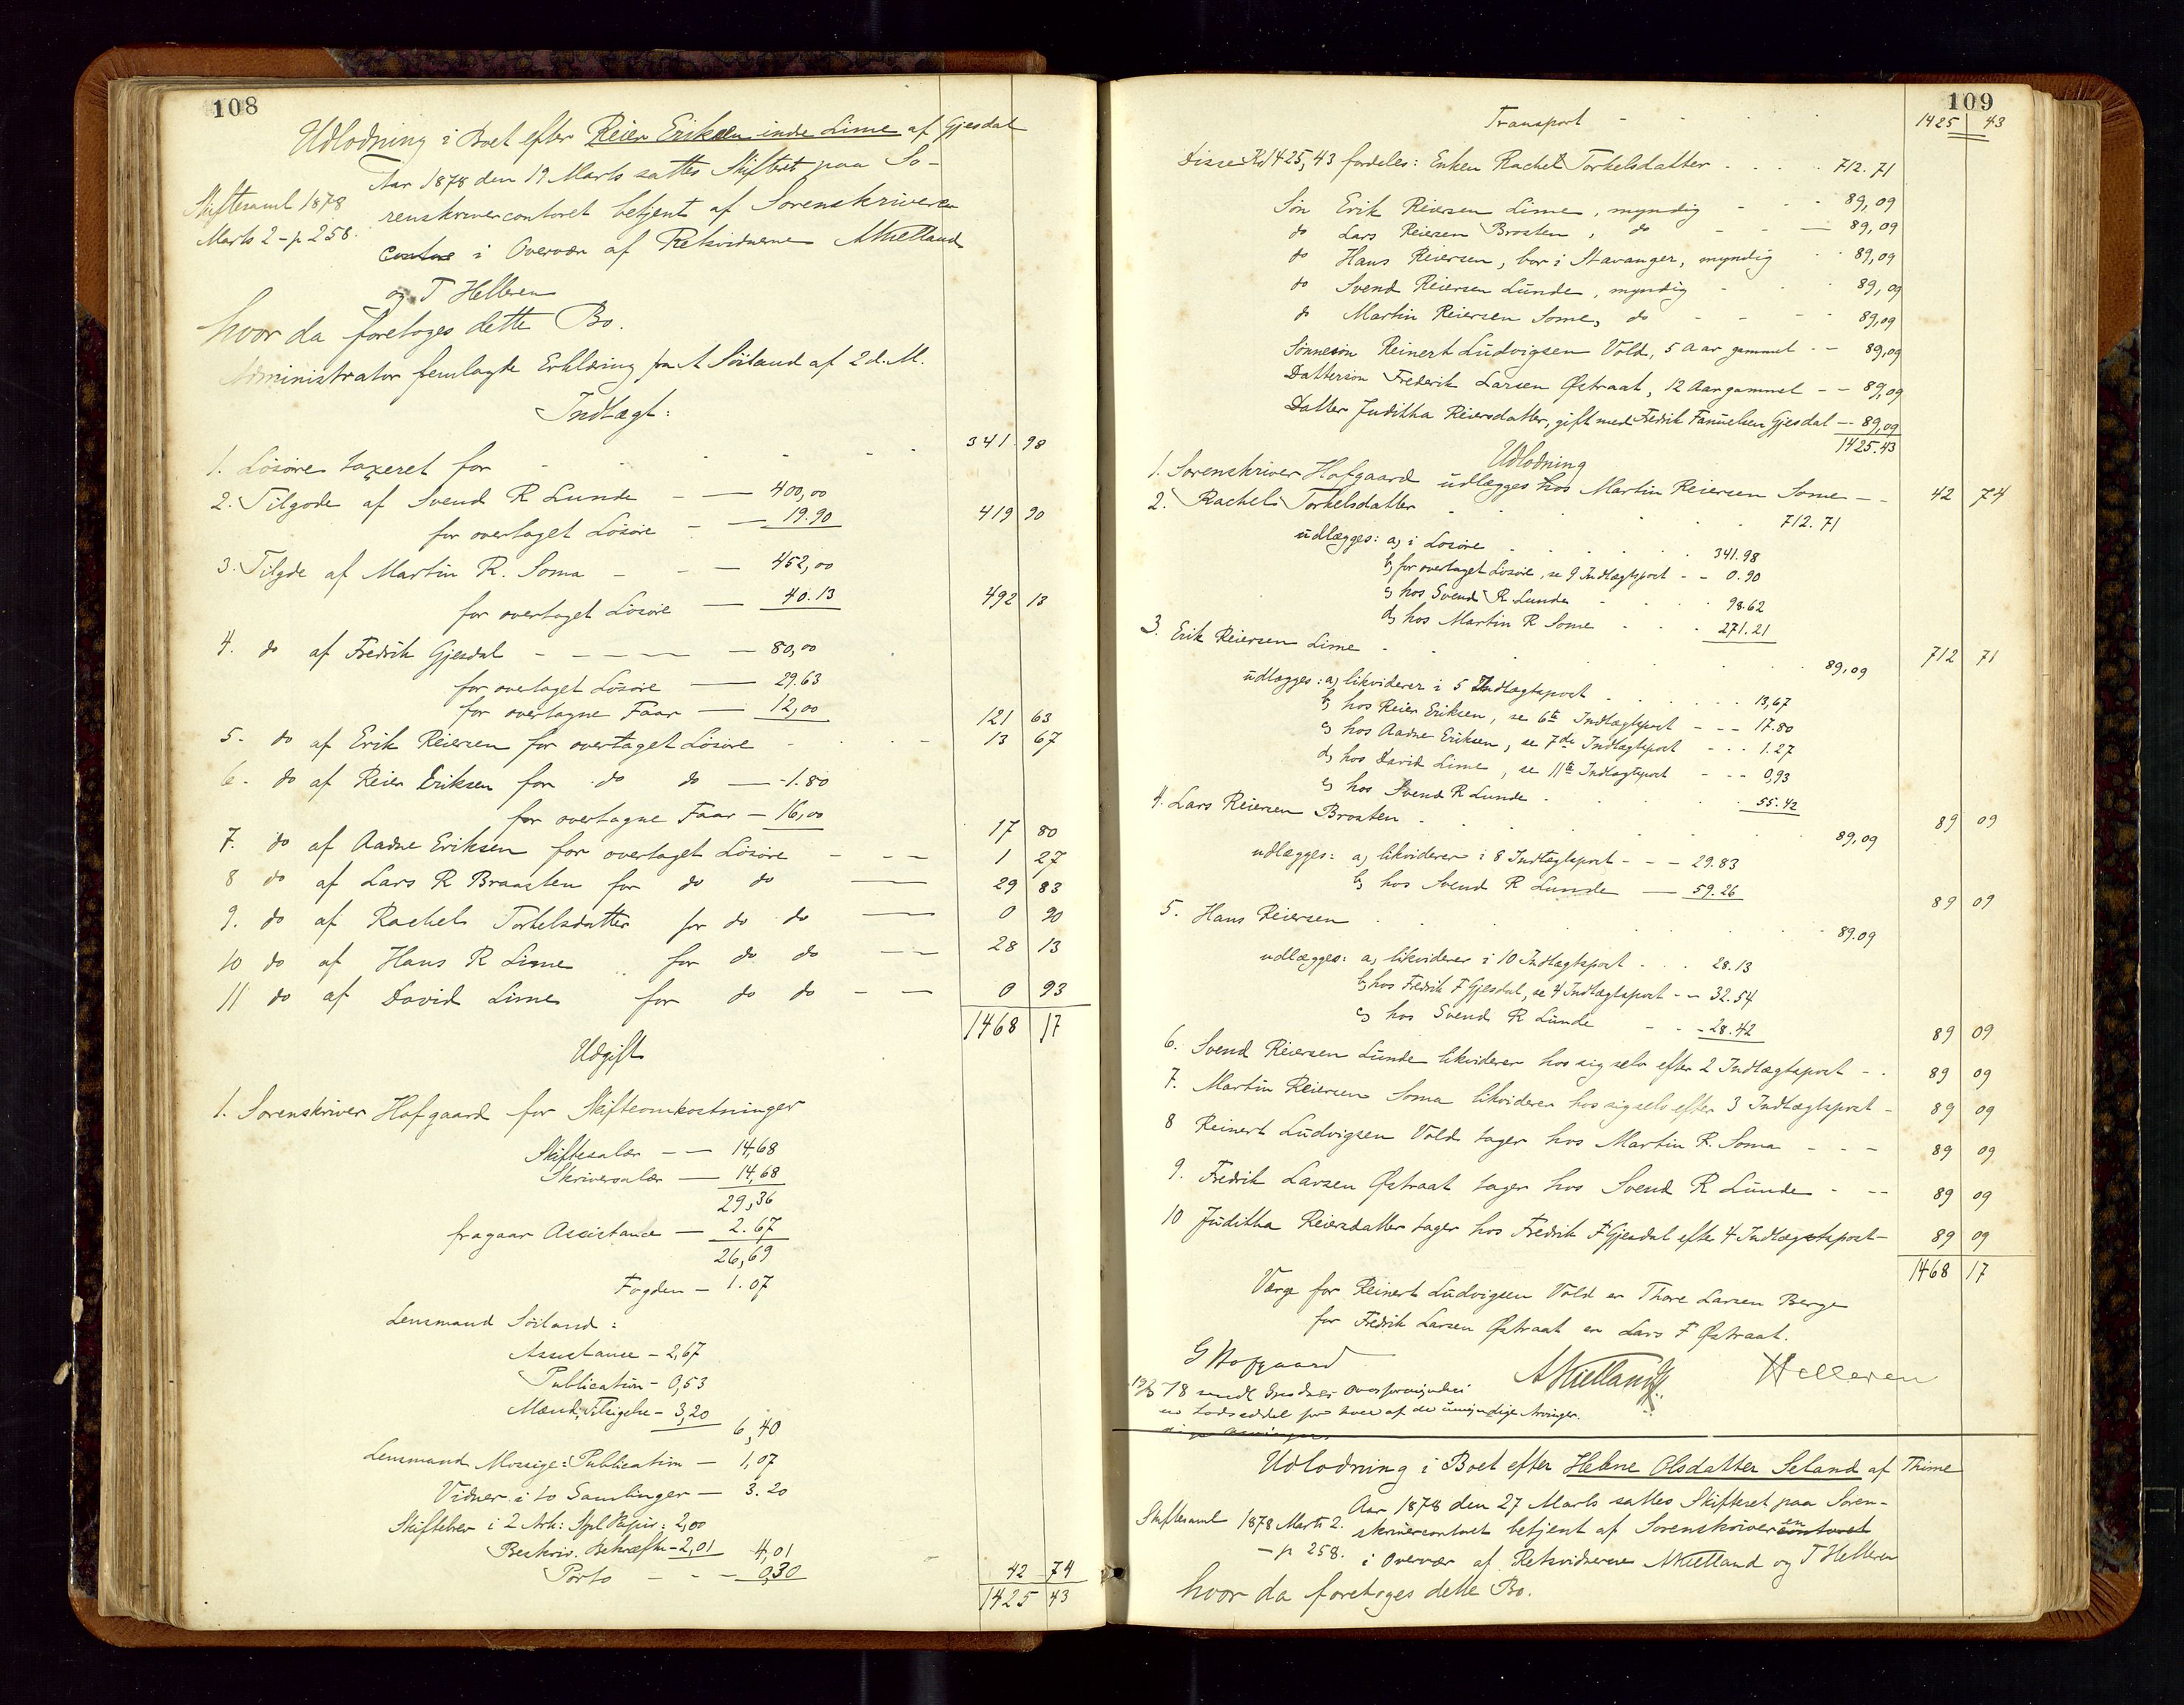 108
Udlodning i Boet efter Reier Eriksen indre Lime af Gjesdal
Skiftesaml 1878
Marts 2 - p 258.
Aar 1878 den 19 Marts sattes Skifteret paa So-
renskrivercontoret betjent af Sorenskriveren
i Overvær af Retsvidnerne AKielland
og T Helleren
hvor da foretoges dette Bo.
Administrator fremlagte Erklæring fra A Söiland af 2 d. M.
Indtægt:
1. Lösöre taxeret for - - - - - 341 98
2. Tilgode af Svend R Lunde - — 400,00
for overtaget Lösöre - — 19.90 419 90
3. Tilgde af Martin R. Soma - - — 452,00
for overtaget Lösöre — 40.13 492 13
4. do af Fredrik Gjesdal - - — — — 80,00
for overtaget Lösöre — 29.63
for overtagne Faar — 12,00 121 63
5. do af Erik Reiersen for overtaget Lösöre - - - - 13 67
6. do af Reier Eriksen for do do — 1.80
for overtagne Faar — 16,00 17 80
7. do af Aadne Eriksen for overtaget Lösöre - - - 1 27
8 do af Lars R Braasten for do do — 29 83
9. do af Rachel Torkelsdatter for do do — 0 90
10 do af Hans R Lime for do do — 28 13
11 do af David Lime for do do - — 0 93
1468 17
Udgift
1. Sorenskriver Hofgaard for Skifteomkostninger
Skiftesalær — — 14,68
Skriversalær — 14,68
29,36
fragaar Assistance — 2.67
26,69
Fogden — 1.07
Lensmand Söiland:
Assistance - 2,67
Publication - 0,53
Mænd, Tilsigelse - 3,20
6,40
Lensmand Mossige: Publication — 1,07
Vidner i to Samlinger — 3.20
Skiftebrev i 2 Ark: Stpl Papir: 2,00
Beskriv. Bekræftn - 2,01 4,01
Porto - - - 0,30 42 74
1425 43
109
Transport - - - - 1425 43
Disse Kr 1425,43 fordeles: Enken Rachel Torkelsdatter - - - - 712.71
Sön Erik Reiersen Lime, myndig - - - 89,09
do Lars Reiersen Brosten, do - - — 89,09
do Hans Reiersen, bor i Stavanger, myndig - - 89,09
do Svend Reiersen Lunde, myndig - - - 89,09
do Martin Reiersen Some, do - - - - 89,09
Sönnesön Reinert Ludvigsen Vold, 5 Aar gammel - - 89,09
Dattersön Frederik Larsen Østraat, 12 Aar gammel - - 89,09
Datter Juditha Reiersdatter, gift med Fredrik Fanuelsen Gjesdal -- 89,09
1425.43
Udlodning
1. Sorenskriver Hofgaard udlægges hos Martin Reiersen Some - - 42 74
2. Rachel Torkelsdatter - - - - - 712.71
udlægges: a, i Losöre - - - - - 341.98
b, for overtaget Lösöre, se 9 Indtægtspost - - 0.90
c, hos Svend R Lunde - - - 98.62
d, hos Martin R Some - - - 271.21
712 71
3. Erik Reiersen Lime - - - - - - 89,09
udlægges: a, likviderer i 5 Indtægtspost - - - - - 13,67
b, hos Reier Eriksen, se 6te Indtægtspost - - - 17.80
c, hos Aadne Eriksen, se 7de Indtægtspost - - - 1.27
d, hos David Lime, se 11te Indtægtspost - - - 0,93
e, hos Svend R Lunde - - - - - 55.42
89 09
4. Lars Reiersen Brosten - - - - - 89,09
udlægges: a, likviderer i 8 Indtægtspost - - - 29.83
b, hos Svend R Lunde — 59.26
89 09
5. Hans Reiersen - - - - - - 89.09
udlægges: a, likviderer i 10 Indtægtspost - - - 28.13
b, hos Fredrik F Gjesdal, se 4 Indtægtspost - - 32.54
c, hos Svend R Lunde - - - 28.42
89 09
6. Svend Reiersen Lunde likviderer hos sig selv efter 2 Indtægtspost - - 89 09
7. Martin Reiersen Soma likviderer hos sig selv efter 3 Indtægtspost - 89 09
8 Reinert Ludvigsen Vold tager hos Martin R. Soma - - - 89 09
9. Fredrik Larsen Østraat tager hos Svend R Lunde - - - 89 09
10 Juditha Reiersdatter tager hos Fredrik F Gjesdal efter 4 Indtægtspost - 89 09
1468 17
Værge for Reinert Ludvigsen Vold er Thore Larsen Berge
for Fredrik Larsen Østraat er Lars F Østraat.
G Hofgaard AKielland Helleren
78 sendt Overformynderi
en Lodseddel for hver af de umyndige Arvinger.
Udlodning i Boet efter Helene Olsdatter Seland af Thime
Skiftesaml 1878 Marts 2.
- p 258.
Aar 1878 den 27 Marts sattes Skifteret paa Soren-
skrivercontoret betjent af Sorenskriveren
i Overvær af Retsvidnerne AKielland og T Helleren
hvor da foretoges dette Bo.